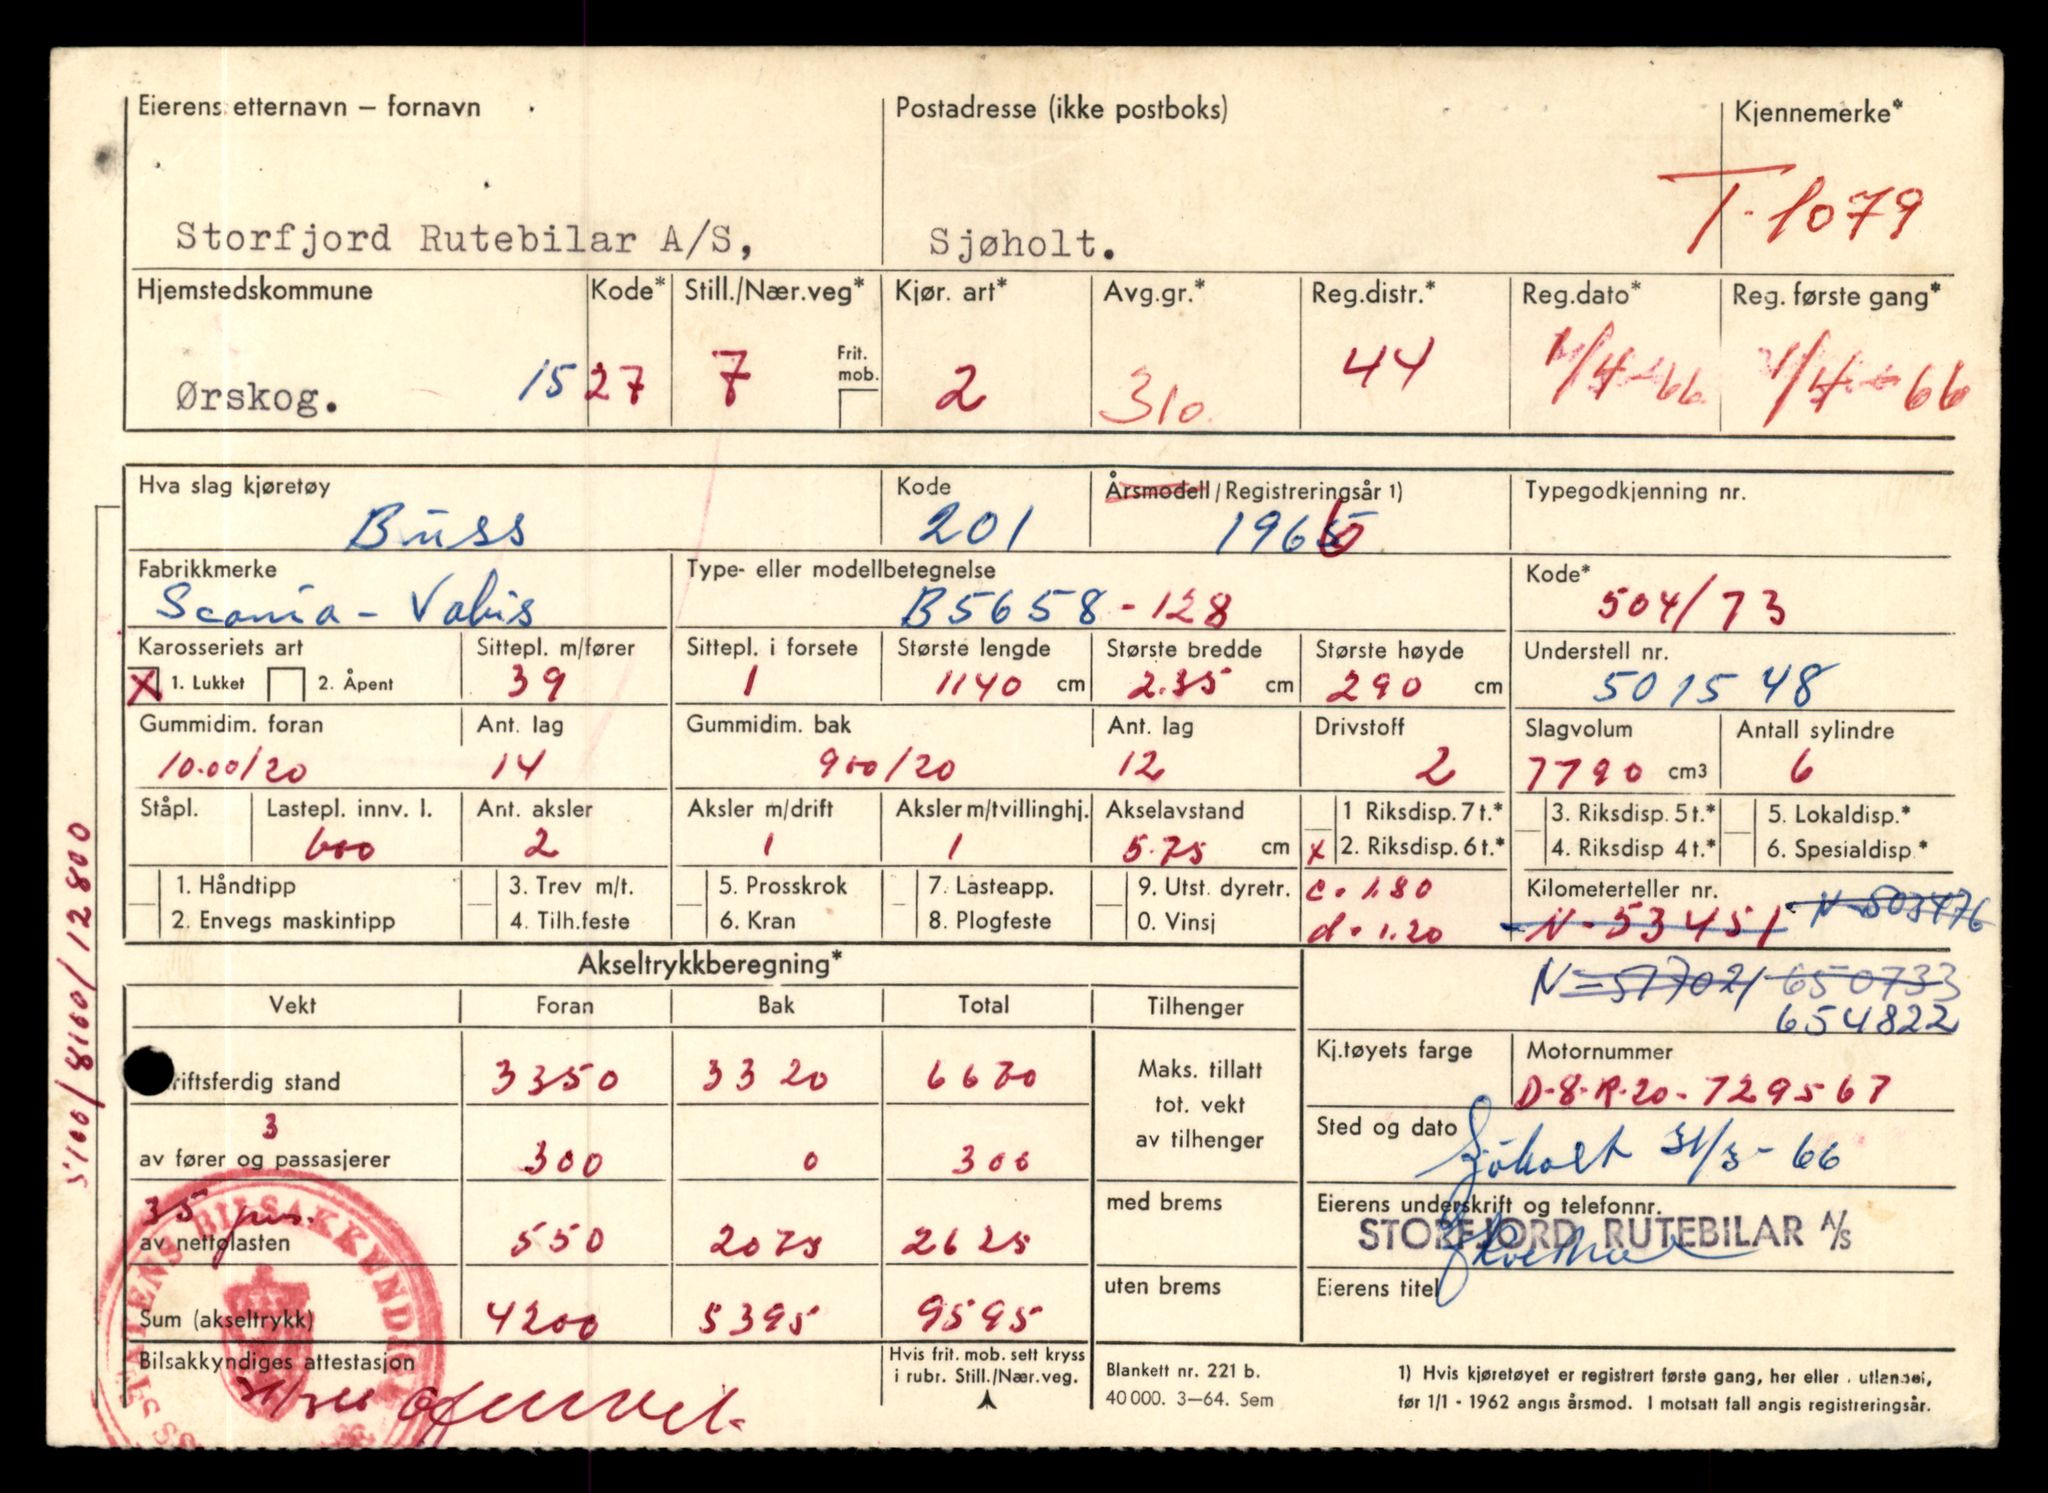 Eierens etternavn – fornavn Postadresse (ikke postboks) Kjennemerke*
T-1079
Storfjord Rutebilar A/S, Sjøholt.
Hjemstedskommune Kode* Still./Nær.veg* Kjør. art* Avg.gr.* Reg.distr.* Reg.dato* Reg. første gang*
Frit. mob.
Ørskog. 1527 7 2 310 44 1/4-66 1/4-66
Hva slag kjøretøy Kode Årsmodell/Registreringsår 1) Typegodkjenning nr.
Buss 201 1966
Fabrikkmerke Type- eller modellbetegnelse Kode*
Scania-Vabis B5658-128 504/73
Karosseriets art Sittepl. m/fører Sittepl. i forsete Største lengde Største bredde Største høyde Understell nr.
X 1. Lukket 2. Åpent 39 1 1140 cm 2.35 cm 290 cm 501548
Gummidim. foran Ant. lag Gummidim. bak Ant. lag Drivstoff Slagvolum Antall sylindre
10.00/20 14 900/20 12 2 7790 cm3 6
Ståpl. Lastepl. innv. l. Ant. aksler Aksler m/drift Aksler m/tvillinghj. Akselavstand 1 Riksdisp. 7 t.* 3. Riksdisp. 5 t.* 5. Lokaldisp.*
600 2 1 1 5.75 cm x 2. Riksdisp. 6 t.* 4. Riksdisp 4 t.* 6. Spesialdisp.*
1. Håndtipp 3. Trev m/t. 5. Prosskrok 7. Lasteapp. 9. Utst. dyretr. c. 1.80 Kilometerteller nr.
2. Envegs maskintipp 4. Tilh.feste 6. Kran 8. Plogfeste 0. Vinsj d. 1.20 N-53451 N-503476
Akseltrykkberegning* N=57702/ 650733
654822
Vekt Foran Bak Total Tilhenger
Kj.tøyets farge Motornummer
riftsferdig stand 3350 3320 6670 Maks. tillatt
tot. vekt D-8-R-20-729567
3
av fører og passasjerer 300 0 300 av tilhenger
Sted og dato Sjøholt 31/3-66
35 pas.
av nettolasten 550 2075 2625 med brems
Eierens underskrift og telefonnr.
STORFJORD RUTEBILAR A/S
uten brems Eierens titel
Sum (akseltrykk) 4200 5395 9595
STATENS BILSAKKYNDIGE
Bilsakkyndiges attestasjon Hvis frit. mob. sett kryss
i rubr. Still./Nær.veg.
Blankett nr. 221 b.
40 000. 3—64. Sem
1) Hvis kjøretøyet er registrert første gang, her eller i utlandet,
før 1/1 - 1962 angis årsmod. I motsatt fall angis registreringsår.
5100/8100/12800